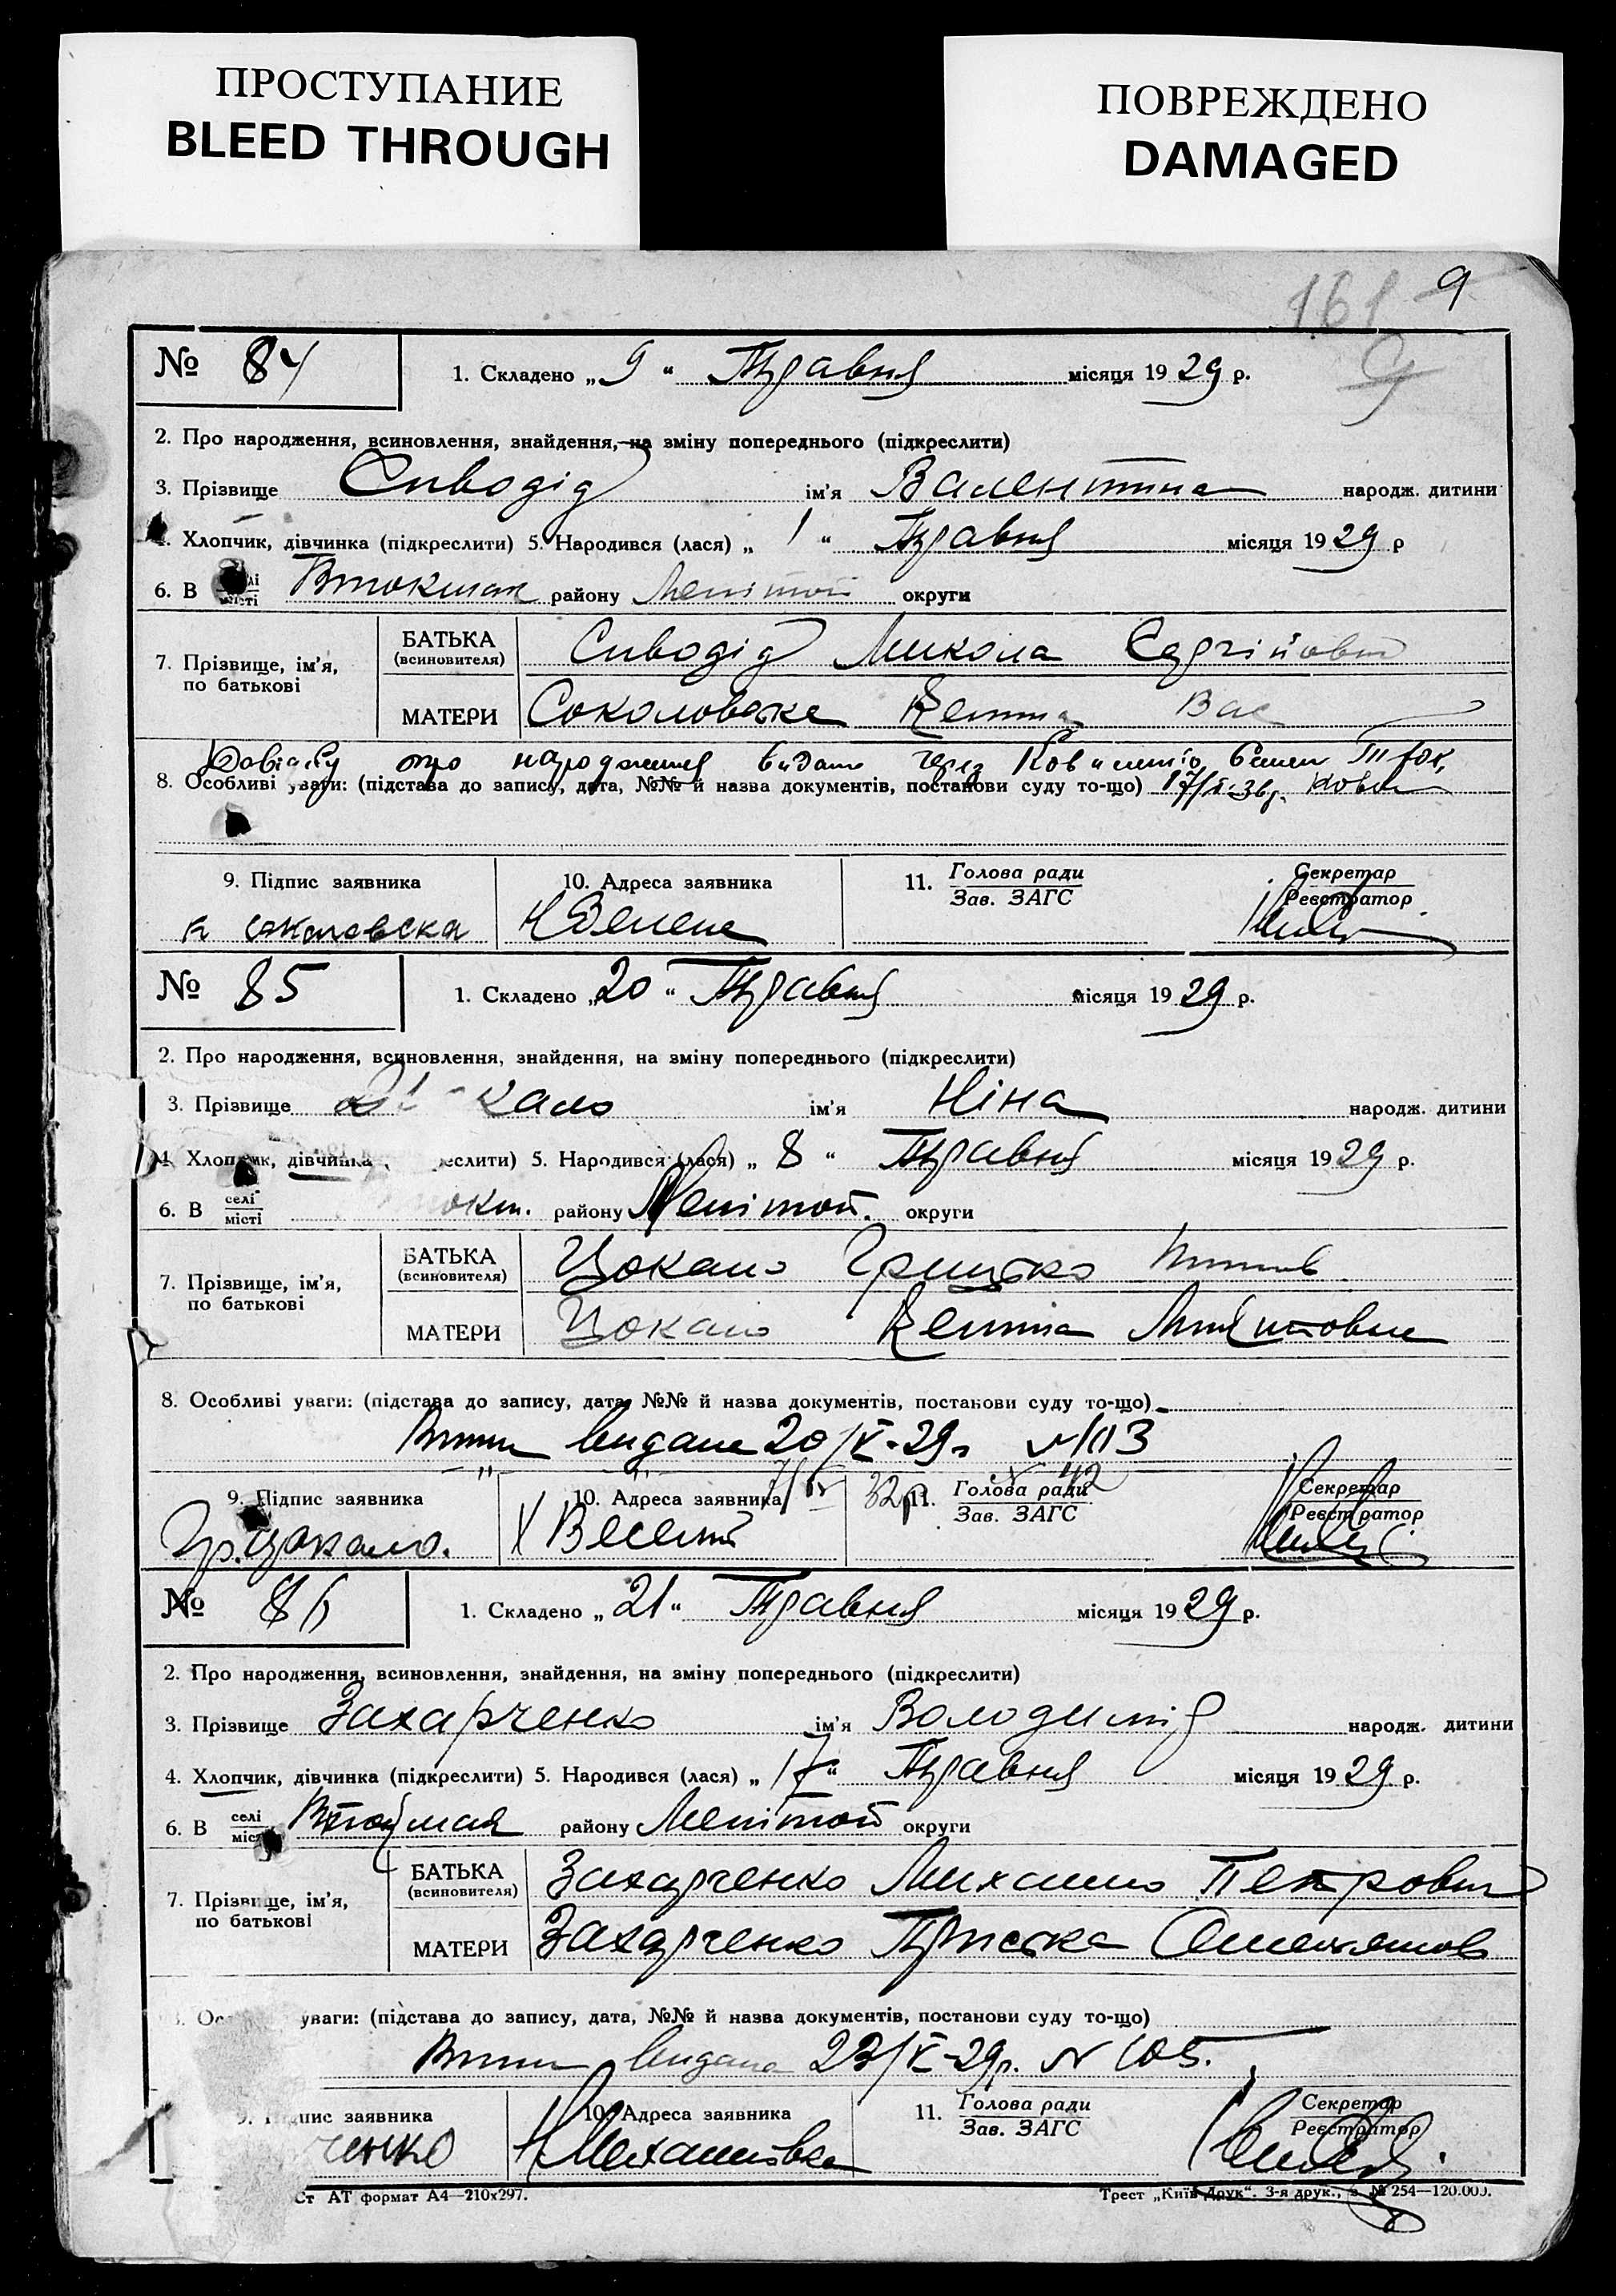 ПРОСТУПАНИЕ
BLEED THROUGH
ПОВРЕЖДЕНО
DAMAGED
161 9
9
№ 84 1. Складено „9“ Травня місяця 1929 р.
2. Про народження, всиновлення, знайдення, на зміну попереднього (підкреслити)
3. Прізвище Сиводід ім'я Валентина народж. дитини
4. Хлопчик, дівчинка (підкреслити) 5. Народився (лася) „1“ Травня місяця 1929 р
6. В селі місті Втокмак району Меліітоп округи
7. Прізвище, ім'я, по батькові
БАТЬКА (всиновителя) Сиводід Микола Сергійович
МАТЕРИ Соколовська Ксенія Вас
Довідку про народження видано через
8. Особливі уваги: (підстава до запису, дата, №№ й назва документів, постанови суду то-що)
9. Підпис заявника 10. Адреса заявника 11. Голова ради Зав. ЗАГС Секретар Реєстратор
№ 85 1. Складено „20“ Травня місяця 1929 р.
2. Про народження, всиновлення, знайдення, на зміну попереднього (підкреслити)
3. Прізвище кало ім'я Ніна народж. дитини
4. Хлопчик, дівчинка еслити) 5. Народився (лася) „8“ Травня місяця 1929 р.
6. В селі місті ток. району Меліітоп. округи
7. Прізвище, ім'я, по батькові
БАТЬКА (всиновителя) Цокало Грицько
МАТЕРИ Цокало Ксенія
8. Особливі уваги: (підстава до запису, дата, №№ й назва документів, постанови суду то-що)
видана 20/V-29р №103
9. Підпис заявника 10. Адреса заявника 11. Голова ради Зав. ЗАГС Секретар Реєстратор
Гр. Цокало. Х Веселий
№ 86 1. Складено „21“ Травня місяця 1929 р.
2. Про народження, всиновлення, знайдення, на зміну попереднього (підкреслити)
3. Прізвище Захарченко ім'я Володимір народж. дитини
4. Хлопчик, дівчинка (підкреслити) 5. Народився (лася) „17“ Травня місяця 1929 р.
6. В селі міс району Меліітоп округи
7. Прізвище, ім'я, по батькові
БАТЬКА (всиновителя) Захарченко Михайло Петрович
МАТЕРИ Захарченко Пріська
уваги: (підстава до запису, дата, №№ й назва документів, постанови суду то-що)
видана 23/V-29р. № 105.
9. Підпис заявника 10. Адреса заявника 11. Голова ради Зав. ЗАГС Секретар Реєстратор
ченко Михайлівка
Ст АТ формат А4—210х297. Трест „Київ-Друк“. 3-я друк., з. № 254—120.000.